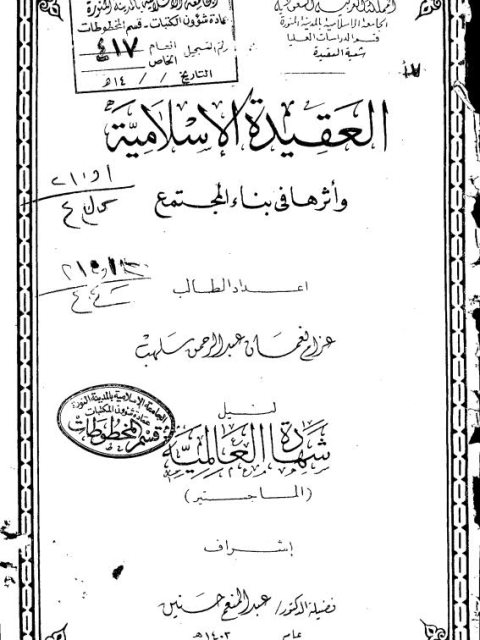 المملكة العربية السعودية
الجامعة الإسلامية بالمدينة المنورة
قسم الدراسات العليا
شعبة العقيدة
الجامعة الإسلامية بالمدينة المنورة
عمادة شؤون المكتبات - قسم المخطوطات
رقم التسجيل العام
الخاص
٤١٧
التاريخ / / ١٤هـ
العقيدة الإسلامية
وأثرها في بناء المجتمع
٢١٠٫١
اعداد الطالب
عزام نعمان عبد الرحمن سلهب
لنيل
شهادة العالمية
(الماجستير)
الجامعة الإسلامية بالمدينة المنورة
عمادة شؤون المكتبات
قسم المخطوطات
إشراف
فضيلة الدكتور/ عبد المنعم حسنين
عام ١٤٠٣هـ